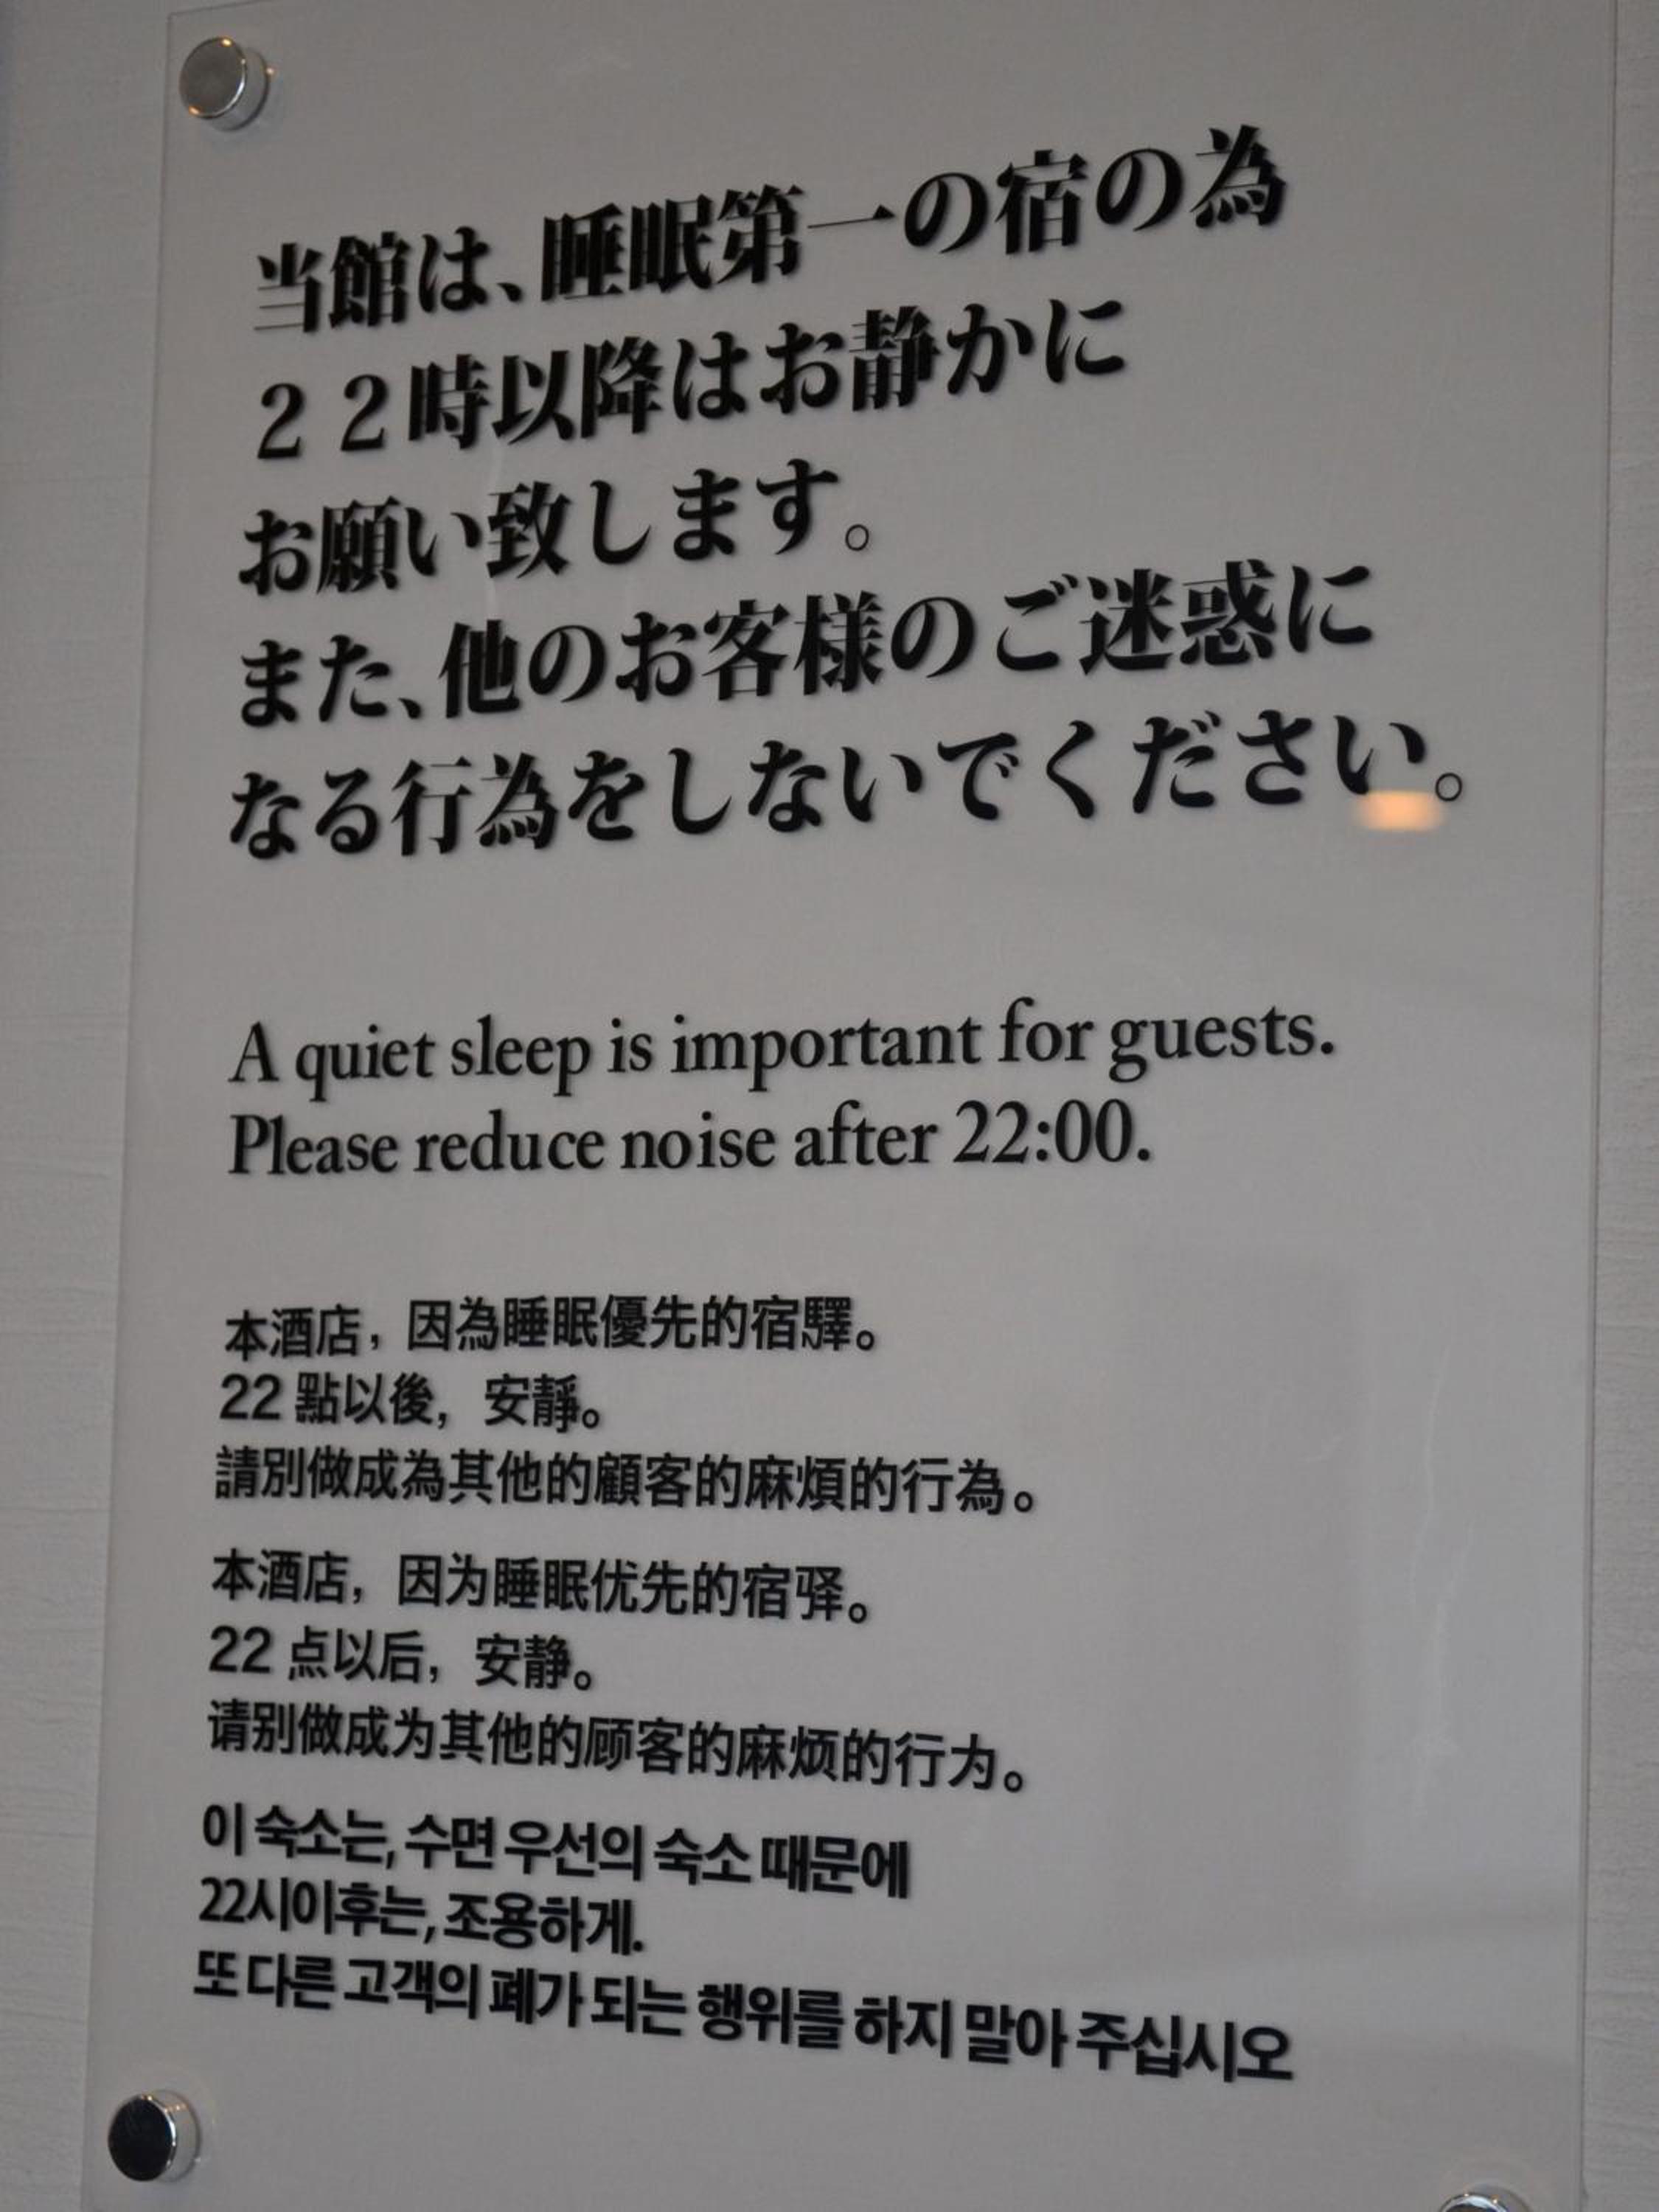 当館は、睡眠第一の宿の為
２２時以降はお静かに
お願い致します。
また、他のお客様のご迷惑に
なる行為をしないでください。
A quiet sleep is important for guests.
Please reduce noise after 22:00.
本酒店，因為睡眠優先的宿驛。
22 點以後，安靜。
請別做成為其他的顧客的麻煩的行為。
本酒店，因为睡眠优先的宿驿。
22 点以后，安静。
请别做成为其他的顾客的麻烦的行为。
이 숙소는, 수면 우선의 숙소 때문에
22시이후는, 조용하게.
또 다른 고객의 폐가 되는 행위를 하지 말아 주십시오